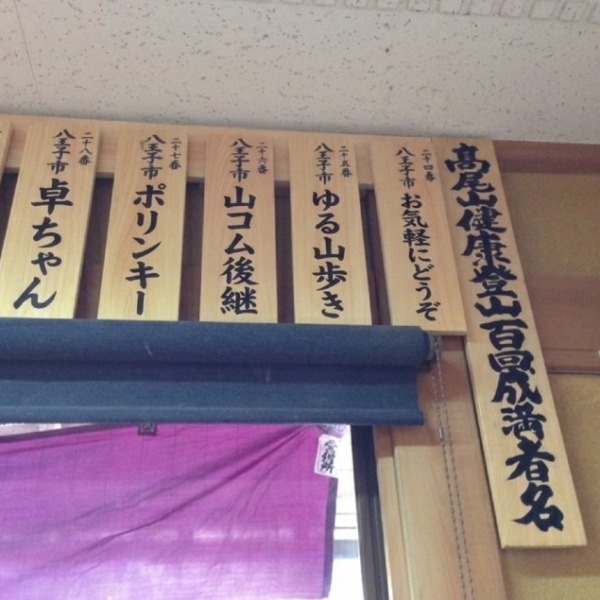 高尾山健康登山百回成満者名
二十四番
八王子市 お気軽にどうぞ
二十五番
八王子市 ゆる山歩き
二十六番
八王子市 山コム後継
二十七番
八王子市 ポリンキー
二十八番
八王子市 卓ちゃん